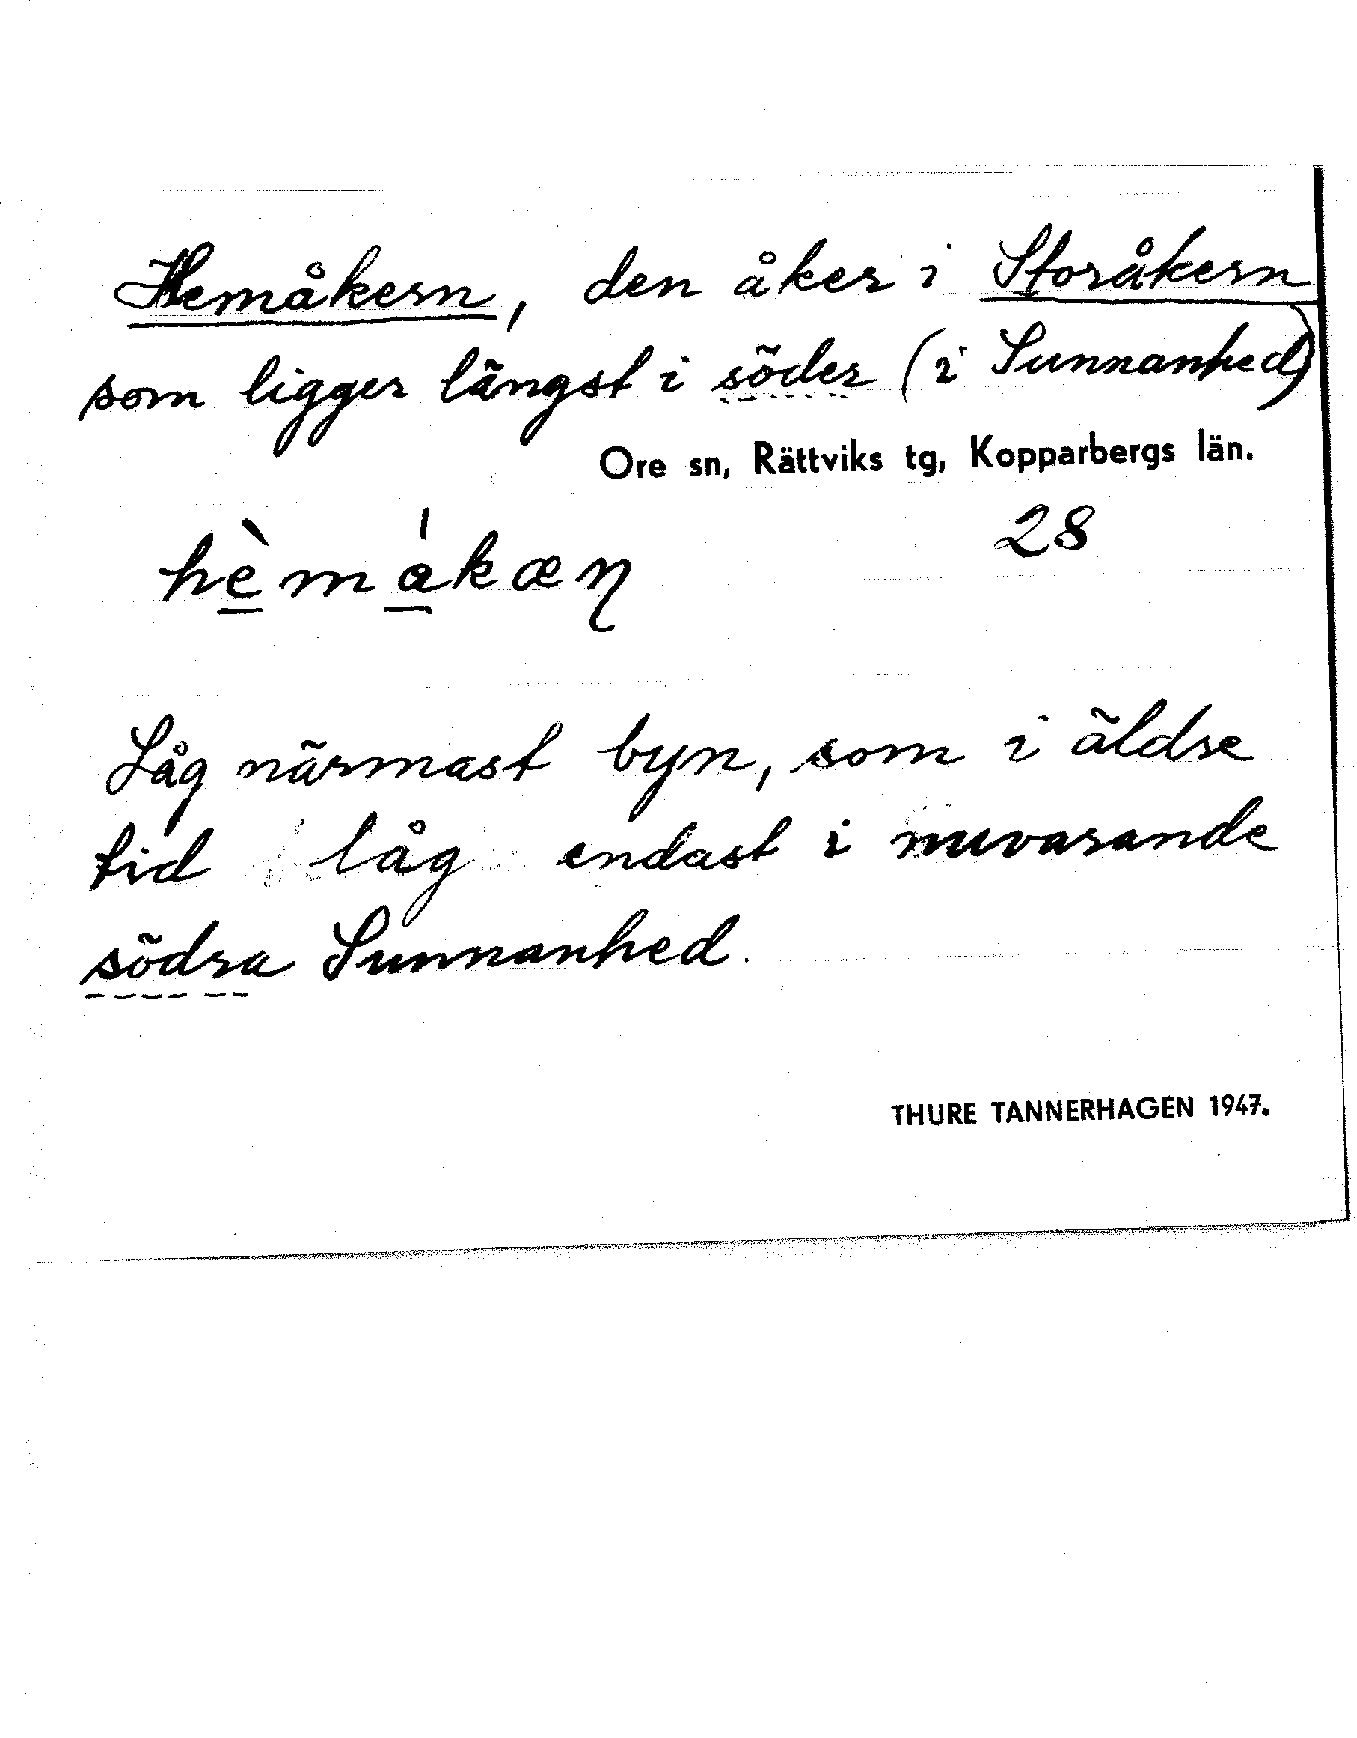 Hemåkern, den åker i Storåkern
som ligger längst i söder (i Sunnanhed)
Ore sn, Rättviks tg, Kopparbergs län.
28
hèmákæɳ
Låg närmast byn, som i äldre
tid låg endast i nuvarande
södra Sunnanhed.
THURE TANNERHAGEN 1947.